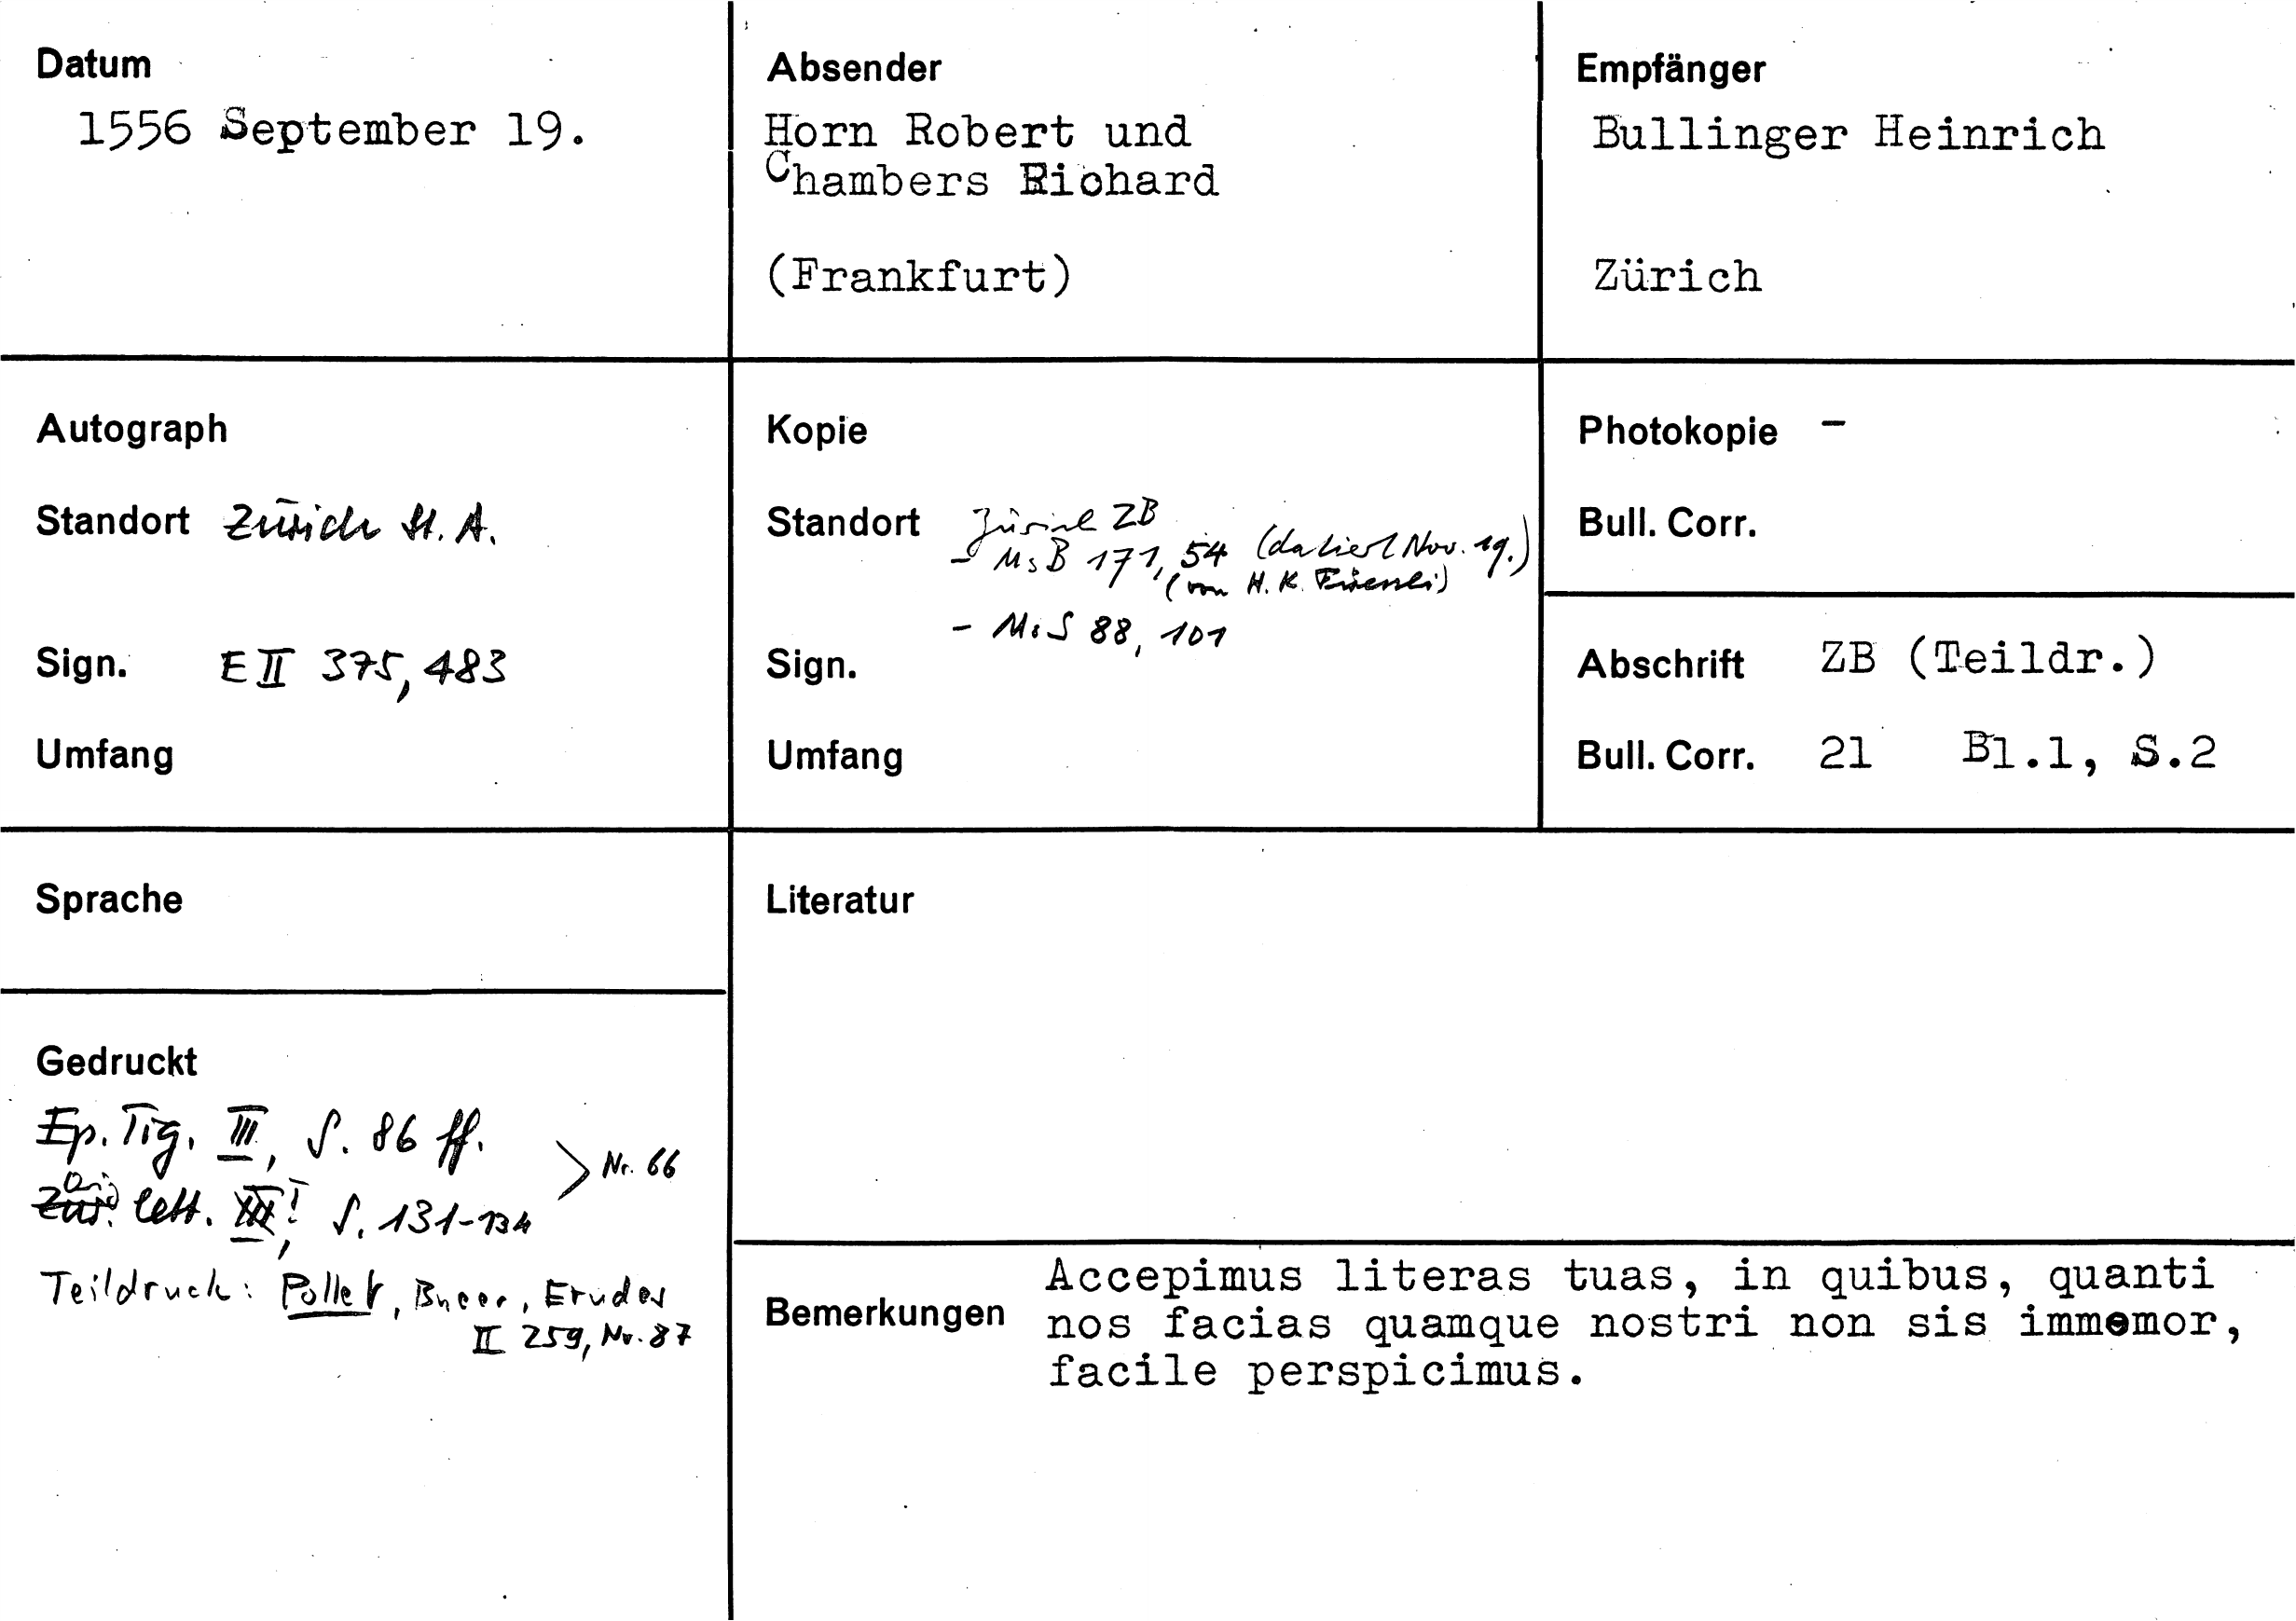 Datum
1556 September 19.
Absender
Horn Robert und
Chambers Richard
(Frankfurt)
Empfänger
Bullinger Heinrich
Zürich
Autograph
Standort Zürich St. A.
Sign. E II 375, 483
Umfang
Kopie
Standort Zürich ZB
- Ms B 171, 54 (datiert Nov. 19.)
(von H. K. Füensli)
- Ms S 88, 101
Sign.
Umfang
Photokopie -
Bull. Corr.
Abschrift ZB (Teildr.)
Bull. Corr. 21 Bl.1, S.2
Sprache
Gedruckt
Ep. Tig. III, S. 86 ff.
Nr. 66
lett. I, S. 131-134
Teildruck: Pollet, Bucer, Etudes
II 259, Nr. 87
Literatur
Bemerkungen
Accepimus literas tuas, in quibus, quanti
nos facias quamque nostri non sis immemor,
facile perspicimus.